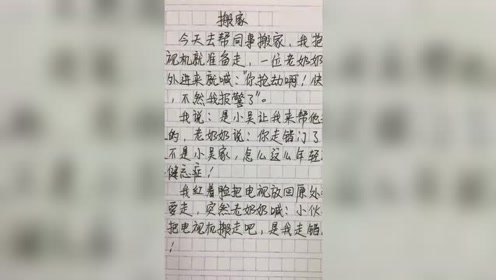 搬家
今天去帮同事搬家，我抱
视机就准备走，一位老奶奶
外进来就喊："你抢劫啊！快
，不然我报警了"。
我说：是小吴让我来帮他
的，老奶奶说：你走错门了
不是小吴家，怎么这么年轻
健忘症！
我红着脸把电视放回原处
要走，突然老奶奶喊：小伙
把电视机搬走吧，是我走错
！